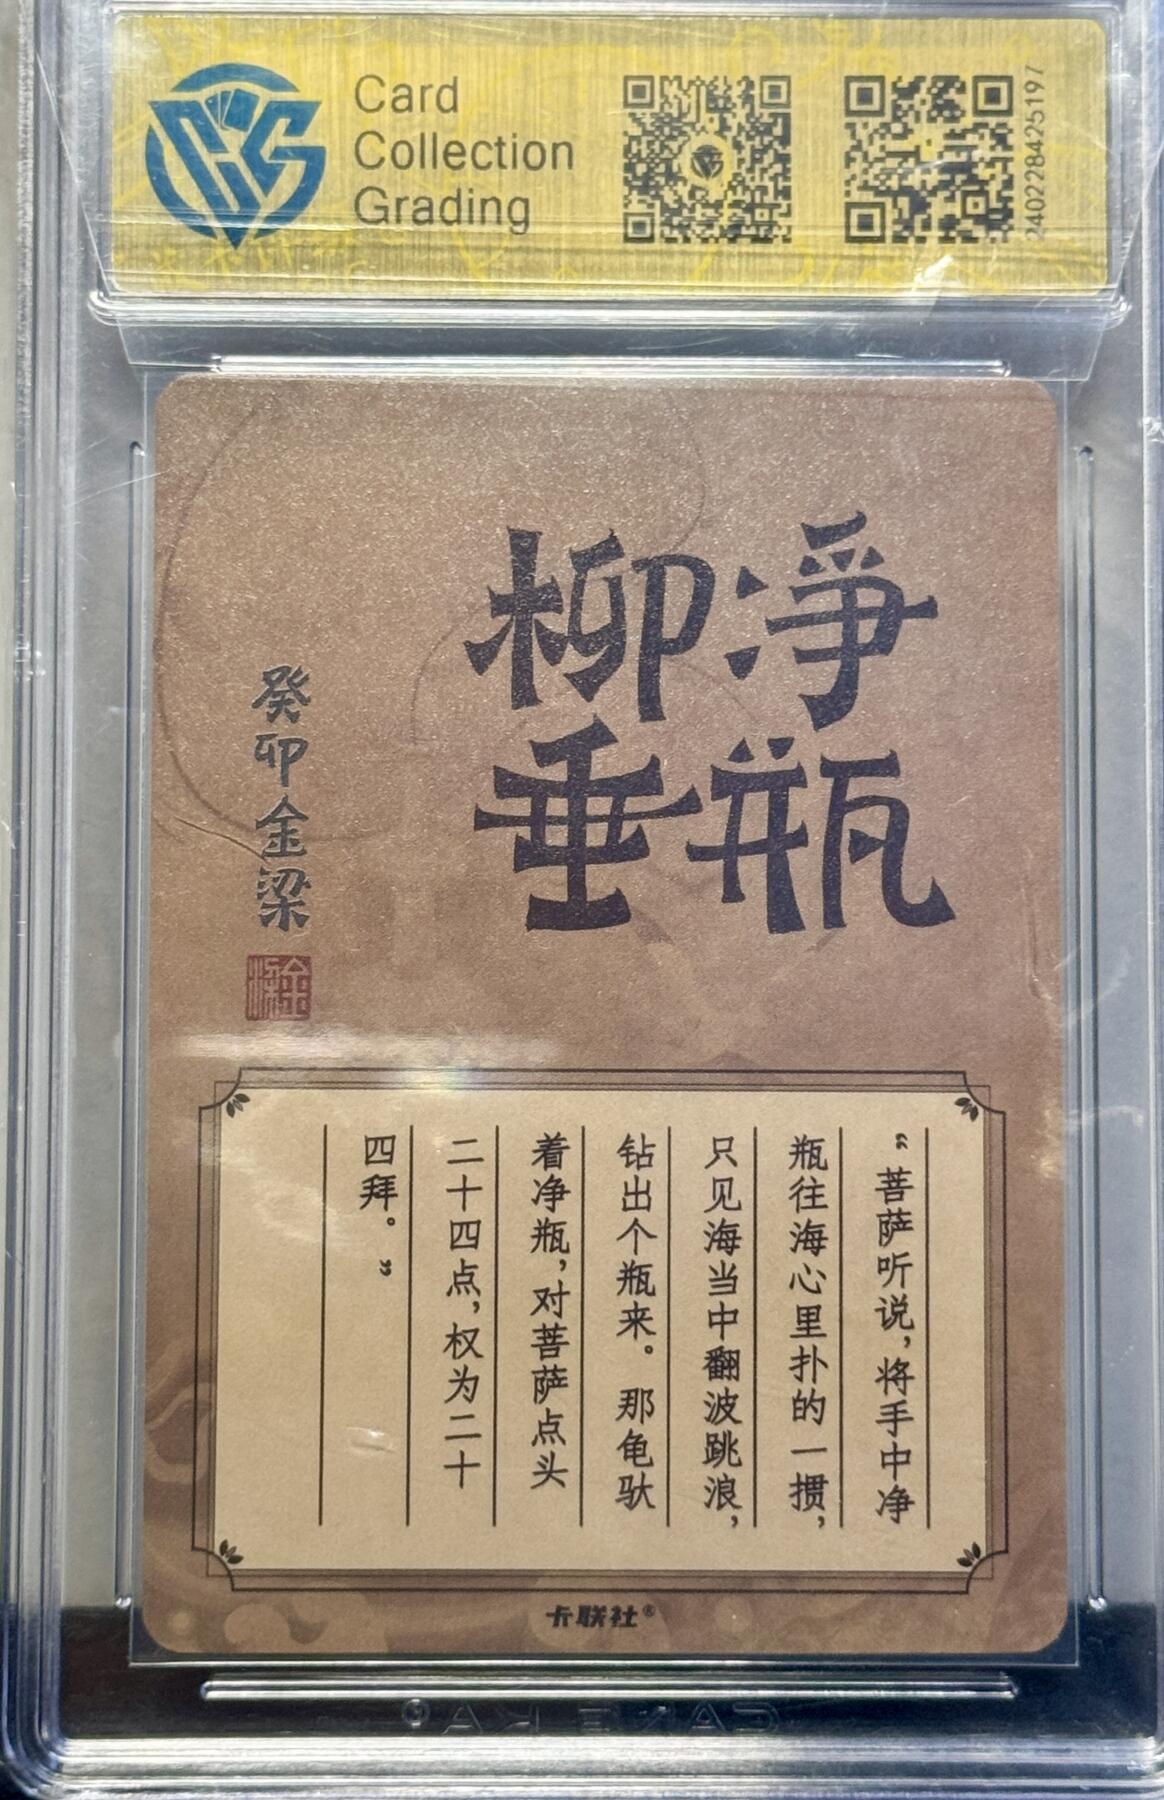 Card
Collection
Grading
240228425197
淨瓶
柳垂
癸卯金梁
“菩萨听说，将手中净
瓶往海心里扑的一掼，
只见海当中翻波跳浪，
钻出个瓶来。那龟驮
着净瓶，对菩萨点头
二十四点，权为二十
四拜。”
卡联社®